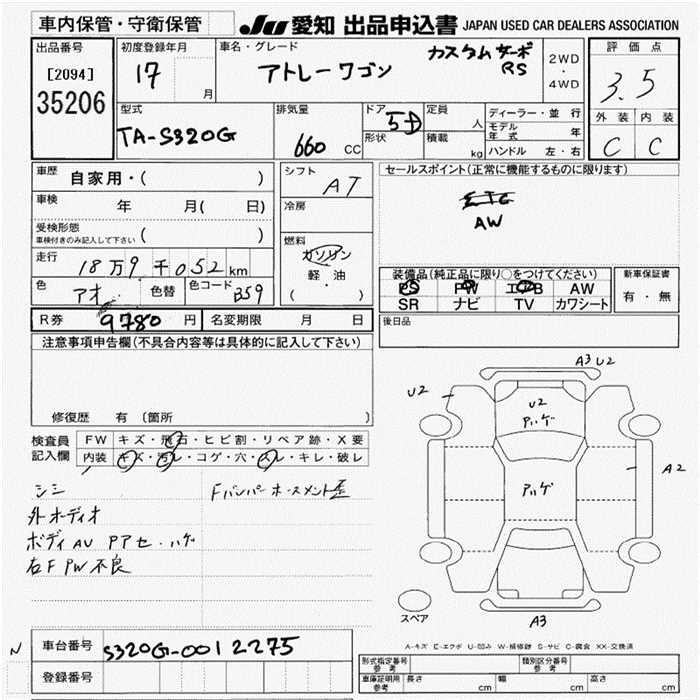 車内保管・守衛保管 JU 愛知 出品申込書 JAPAN USED CAR DEALERS ASSOCIATION
出品番号 初度登録年月 車名・グレード カスタムターボ RS 2WD・4WD 評価点
[2094] 35206 17 月 アトレーワゴン 3.5
型式 排気量 ドア 形状 定員 人 ディーラー・並行 外装 内装
TA-S320G 660 CC 5D 積載 kg モデル年式 年 C C
ハンドル 左・右
車歴 自家用・( ) シフト AT セールスポイント(正常に機能するものに限ります)
車検 年 月( 日) 冷房 ETC
AW
受検形態 車検付きのみ記入して下さい ( )
燃料 ガソリン 軽・油 ( )
走行 18万9千052km 装備品(純正品に限り○をつけてください) 新車保証書
色 アオ 色替 色コード B59 PS PW エアB AW 有・無
SR ナビ TV カワシート
R券 9780円 名変期限 月 日 後日品
注意事項申告欄(不具合内容等は具体的に記入して下さい)
修復歴 有 〔箇所
検査員記入欄 FW キズ・飛石・ヒビ割・リペア跡・X要
内装 キズ・汚レ・コゲ・穴・スレ・キレ・破レ
シミ Fバンパーホースメント歪
外オーディオ
ボディAU Pアセ・ハゲ
右F PW不良
A3 U2
U2
U2
アハゲ
アハゲ
A2
A3
スペア
A-キズ E-エクボ U-凹み W-補修跡 S-サビ C-腐食 XX-交換済
N 車台番号 S320G-0012275 型式指定番号 参考 類別区分番号 参考
登録番号 車庫証明用 参考 長さ cm 幅 cm 高さ cm